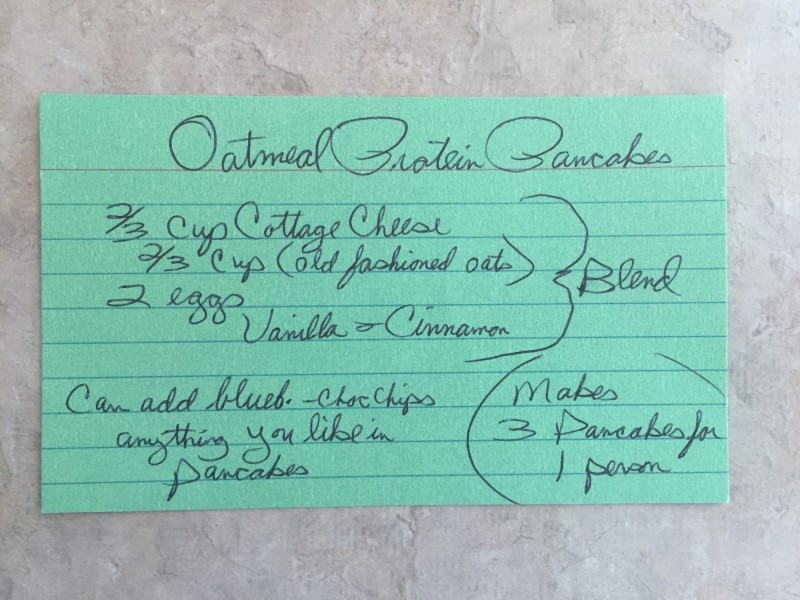 Oatmeal Protein Pancakes
2/3 cup Cottage Cheese
2/3 cup (old fashioned oats)
2 eggs
Blend
Vanilla - Cinnamon
Can add blueb. - choc chips
anything you like in
pancakes
(Makes
3 Pancakes for
1 person)